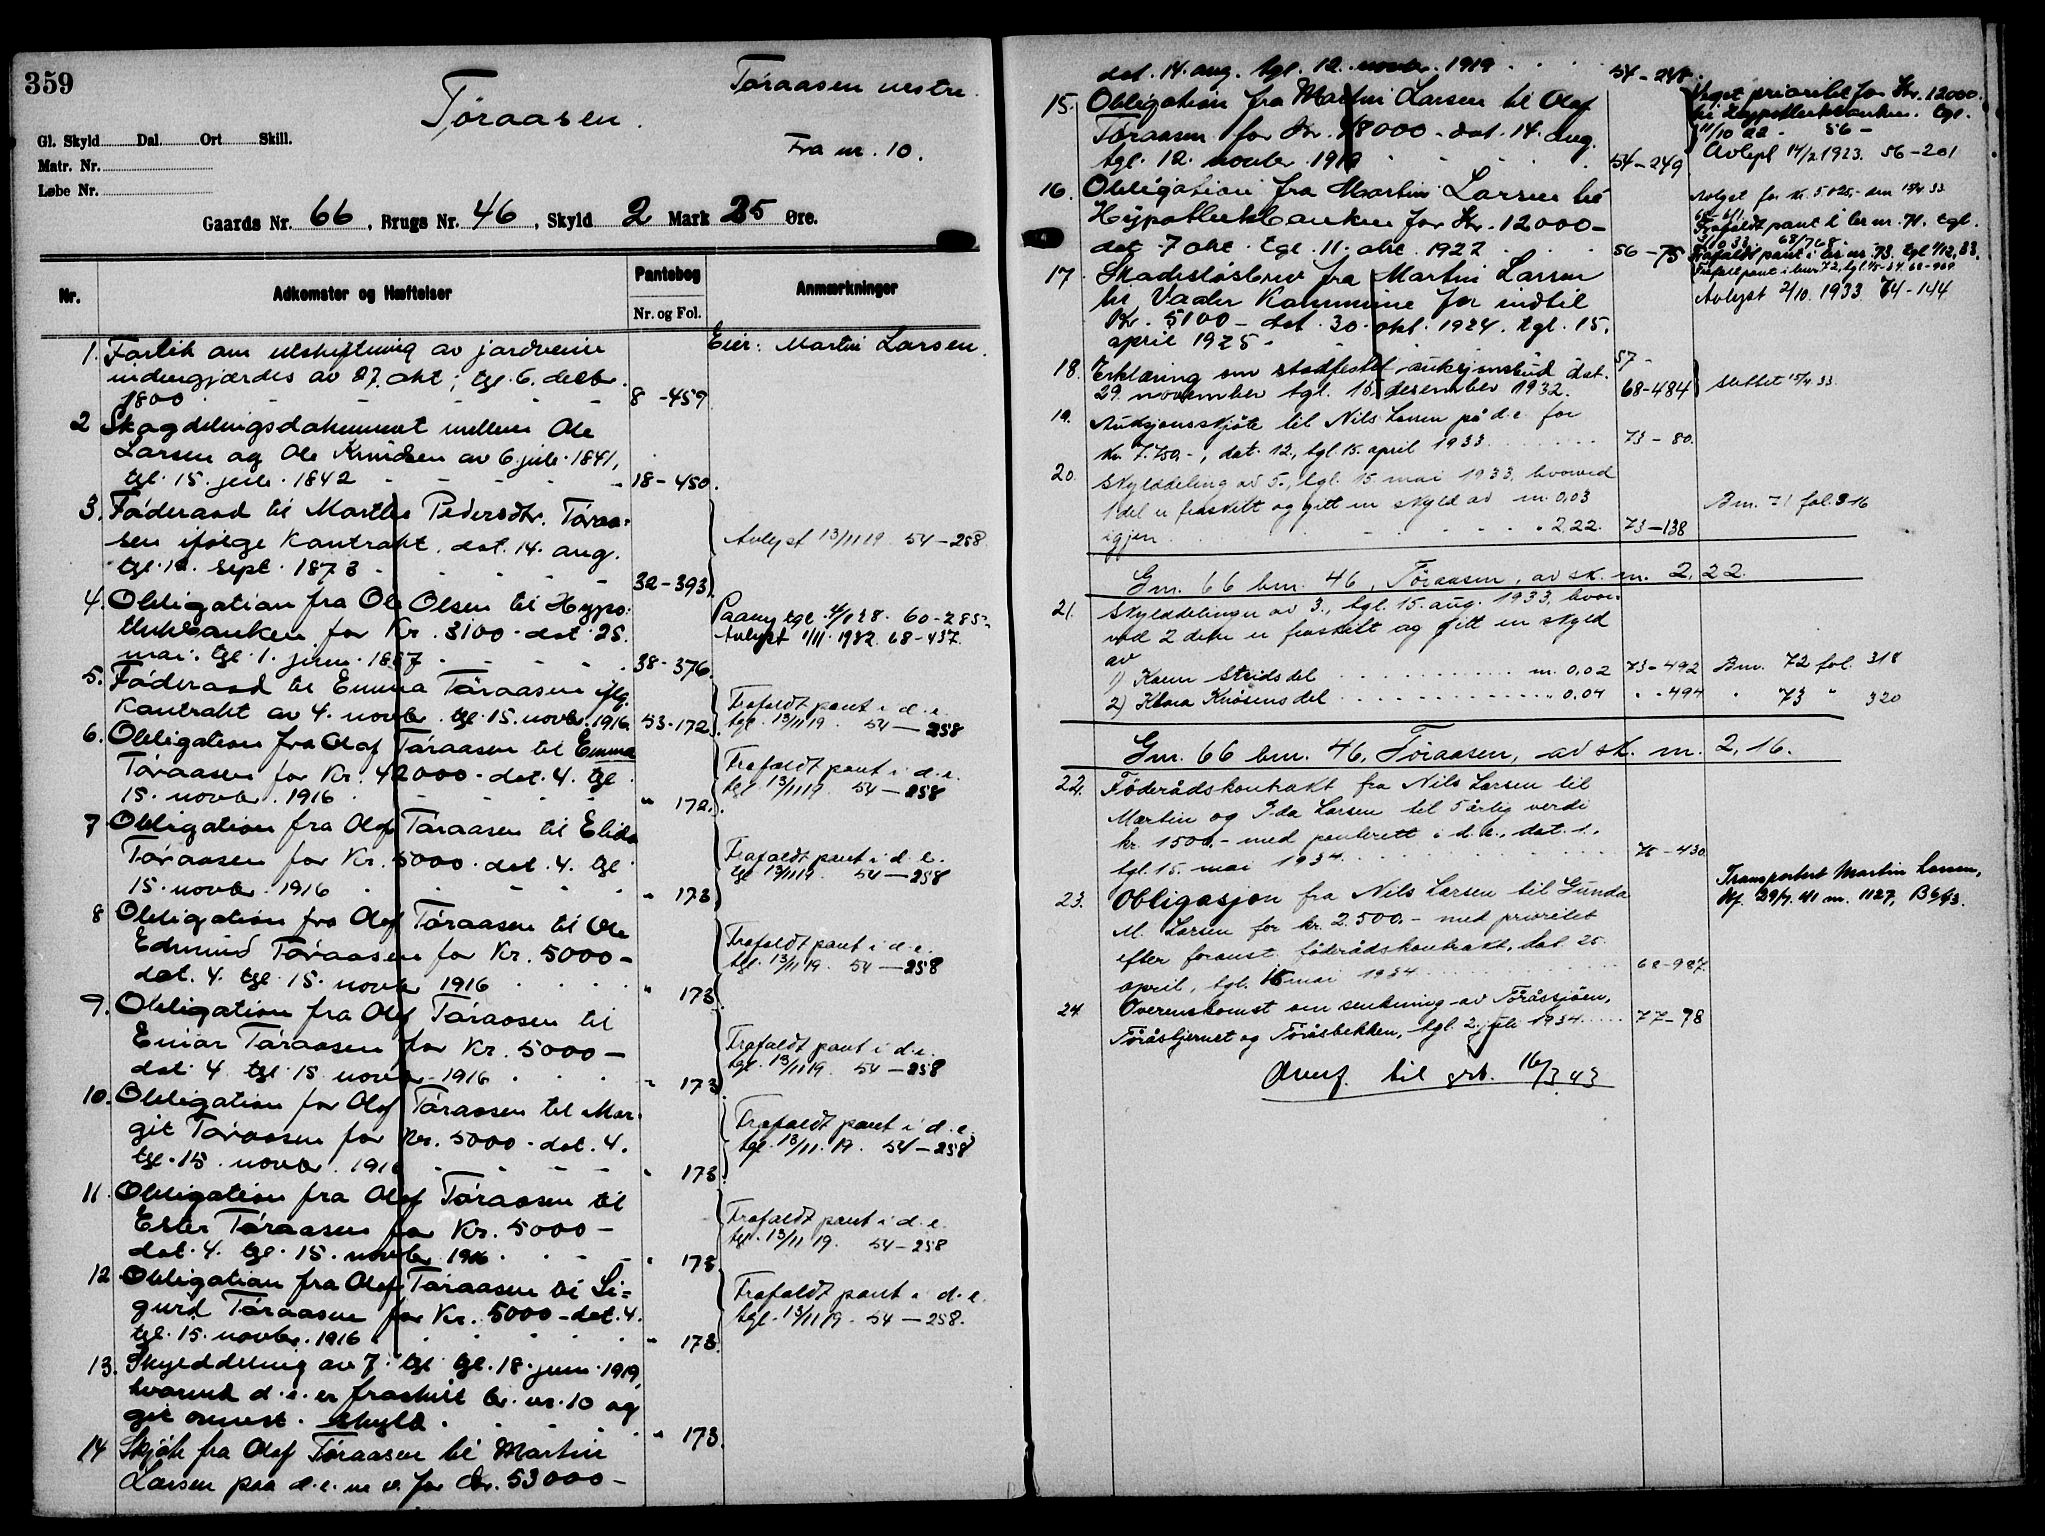 359
Tøraasen vestre.
Tøraasen.
Fra nr. 10.
Gl. Skyld Dal. Ort Skill.
Matr. Nr.
Løbe Nr.
Gaards Nr. 66, Brugs Nr. 46, Skyld 2 Mark 25 Øre.
Nr. Adkomster og Hæftelser Pantebog Nr. og Fol. Anmærkninger
Eier: Martin Larsen.
1. Forlik om utskiftning av jordveie
indengjærdes av 27. okt; tgl. 6. decbr.
1800 8-459
2 Skogdelingsdokument mellem Ole
Larsen og Ole Knudsen av 6 juli 1841,
tgl. 15. juli 1842 18-450.
3. Føderaad til Marthe Pedersdtr. Tøraa-
sen ifølge kontrakt dat. 14. aug.
tgl. 12. sept. 1873 32-393
Avlyst 13/11 19. 54-258.
4. Obligation fra Ole Olsen til Hypo-
thekbanken for Kr. 3100 - dat. 25.
mai. tgl. 1. juni 1887 38-376.
Paany tgl. 4/1 28. 60-285
Avlyst 1/11. 1932. 68-437.
5. Føderaad til Emma Tøraasen iflg.
kontrakt av 4. novbr. tgl. 15. novbr. 1916. 53-172.
Frafaldt pant i d.e.
tgl. 13/11 19. 54-258
6. Obligation fra Olaf Tøraasen til Emma
Tøraasen for Kr. 42000 - dat. 4. tgl
15. novbr. 1916 " 172.
Frafaldt pant i d.e.
tgl. 13/11 19. 54-258
7 Obligation fra Olaf Tøraasen til Elida
Tøraasen for Kr. 5000 - dat. 4. tgl
15. novbr. 1916 " 173
Frafaldt pant i d.e.
tgl 13/11 19. 54-258
8 Obligation fra Olaf Tøraasen til Ole
Edmund Tøraasen for Kr. 5000 -
dat. 4. tgl. 15. novbr 1916 " 173
Frafaldt pant i d.e.
tgl. 13/11 19. 54-258
9. Obligation fra Olaf Tøraasen til
Einar Tøraasen for Kr. 5000 -
dat. 4 tgl 15 novbr 1916 " 173
Frafaldt pant i d.e.
tgl. 13/11 19. 54-258
10. Obligation for Olaf Tøraasen til Mar-
git Tøraasen for Kr. 5000 - dat. 4.
tgl. 15. novbr. 1916 " 173
Frafaldt pant i d.e.
tgl. 13/11. 19. 54-258
11. Obligation fra Olaf Tøraasen til
Ester Tøraasen for Kr. 5000 -
dat. 4. tgl. 15. novbr. 1916 " 173
Frafaldt pant i d.e.
tgl. 13/11 19. 54-258
12 Obligation fra Olaf Tøraasen til Si-
gurd Tøraasen for Kr. 5000 - dat. 4.
tgl. 15. novbr. 1916 " 173
Frafaldt pant i d.e.
tgl. 13/11 19. 54-258.
13. Skylddeling av 7. tgl tgl. 18. juni 1919,
hvorved d.e. er fraskilt br. nr. 10 og
git ommst. skyld " 173.
14 Skjøte fra Olaf Tøraasen til Martin
Larsen paa d.e. m.v. for Kr. 53000 -
dat. 14. aug. tgl. 12. novbr. 1919 54-248.
15. Obligation fra Martin Larsen til Olaf
Tøraasen for Kr. 18000 - dat. 14. aug.
tgl. 12. novbr 1919 54-249
Veget prioritet for Kr. 12000.
til Hypothekbanken. tgl.
11/10 22 - 56 -
Avlyst 14/2 1923. 56-201
16. Obligation fra Martin Larsen til
Hypothekbanken for Kr. 12000 -
dat 7 okt. tgl. 11. okt. 1922 56-75
Frafaldt pant i br nr. 71. tgl.
68/768.
Frafaldt pant i br nr 73. tgl 1/12. 33.
17. Skadesløsbrev fra Martin Larsen
til Vaaler Kommune for indtil
Kr. 5100 - dat. 30. okt. 1924. tgl. 15.
april 1925 - 57 -
Avlyst 2/10. 1933. 74-144
18. Erklæring om stadfestet auksjonsbud dat.
29. november tgl. 15. desember 1932. 68-484
Slettet 15/4 33.
19. Auksjonsskjøte til Nils Larsen på d.e. for
kr. 7.750,-, dat. 12., tgl. 15. april 1933 73-80.
20. Skylddeling av 5., tgl. 15 mai 1933, hvorved
1 del er fraskilt og gitt en skyld av m. 0,03
igjen " 2,22. 73-138
Bnr. 71 fol. 316
Gnr. 66 bnr. 46, Tøraasen, av sk. m. 2,22.
21. Skylddelinger av 3., tgl. 15. aug. 1933, hvor-
ved 2 deler er fraskilt og gitt en skyld
av
1) Karen Strids del m. 0,02 73-492 Bnr. 72 fol. 318
2) Klara Knøsens del " 0,04 " -494 " 73 " 320
Gnr. 66 bnr. 46, Tøraasen, av sk. m. 2,16.
22. Føderådskontrakt fra Nils Larsen til
Martin og Ida Larsen til 5årlig verdi
kr. 1500,- med panterett i d.e., dat. 1.,
tgl. 15. mai 1934 75-430
23. Obligasjon fra Nils Larsen til Gunda
M. Larsen for kr. 2.500,- med prioritet
efter foranst. føderådskontrakt, dat. 25.
april, tgl. 15 mai 1934 68-987.
Transportert Martin Larsen,
24 Overenskomst om senkning av Tøråssjøen,
Tøråstjernet og Tøråsbekken, tgl. 2. juli 1934 77-78
Overf. til grb. 16/3 43